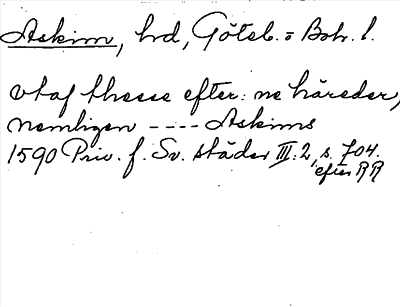 Askim, hrd, Göteb. = Boh. l.
vtaf thesse efter: ne häreder,
nemligen ---- Askims
1590 Priv. f. Sv. städer III: 2, s. 704.
efter RR